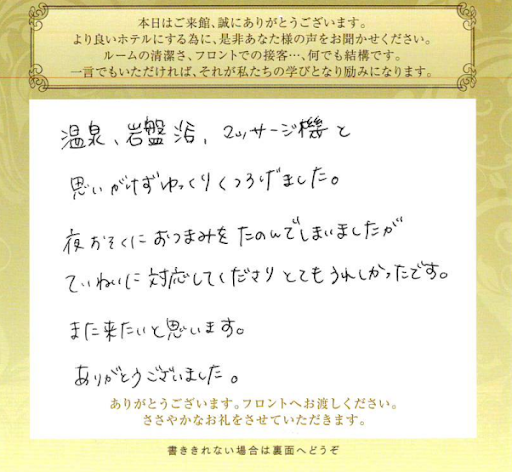 本日はご来館、誠にありがとうございます。
より良いホテルにする為に、是非あなた様の声をお聞かせください。
ルームの清潔さ、フロントでの接客…、何でも結構です。
一言でもいただければ、それが私たちの学びとなり励みになります。
温泉、岩盤浴、マッサージ機と
思いがけずゆっくりくつろげました。
夜おそくにおつまみをたのんでしまいましたが
ていねいに対応してくださりとてもうれしかったです。
また来たいと思います。
ありがとうございました。
ありがとうございます。フロントへお渡しください。
ささやかなお礼をさせていただきます。
書ききれない場合は裏面へどうぞ